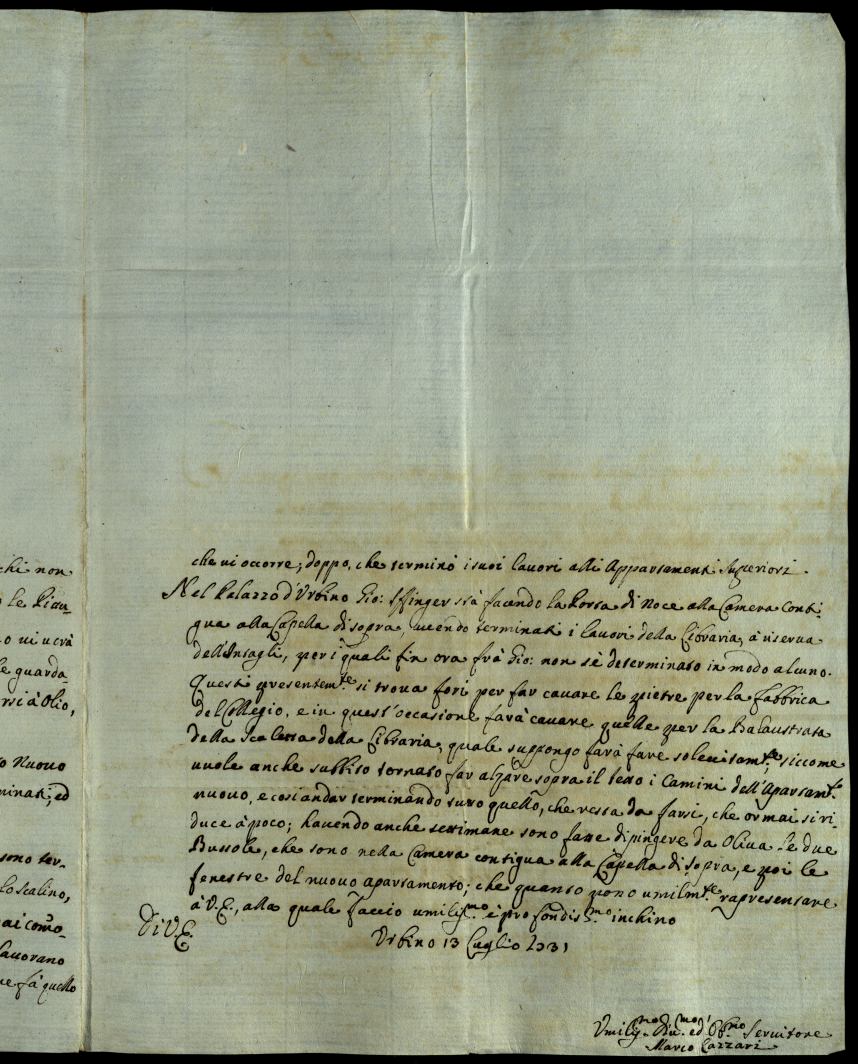 chi non
le Piau-
o ui uerà
le guarda-
rsi à Olio,
o Nuouo
minati, ed
sono ter-
lo Scalino,
lauorano
ne fà quello
che ui occorre, doppo, che terminò i suoi lauori alli Appartamenti Superiori.
Nel Palazzo d'Urbino Gio: Iffinger stà facendo la Porta di Noce alla Camera Conti-
gua alla Capella di sopra, auendo terminati i lauori della Libraria, à riserua
dell'Intagli, per i quali fin ora frà Gio: non s'è determinato in modo alcuno.
Questi presentem.te si troua fori per far cauare le pietre per la fabbrica
del Collegio, e in quest'occasione farà cauare quelle per la Balaustrata
della Scaletta della Libraria, quale suppongo farà fare solecitam.te, siccome
uuole anche subbito tornato far alzare sopra il tetto i Camini dell'Apartam.to
nuouo, e cosi andar terminando tutto quello, che resta da farsi, che ormai si ri-
duce à poco; hauendo anche settimane sono fatte dipingere da Oliua le due
Bussole, che sono nella Camera contigua alla Capella di sopra, e poi le
fenestre del nuouo apartamento; che quanto posso umilm.te rapresentare
à V.E., alla quale faccio umilis.mo e profondis.mo inchino
Di V.E.
Urbino 13 Luglio 1731
Umilis.mo Diu.mo ed Obb.mo Seruitore
Marco Lazzari